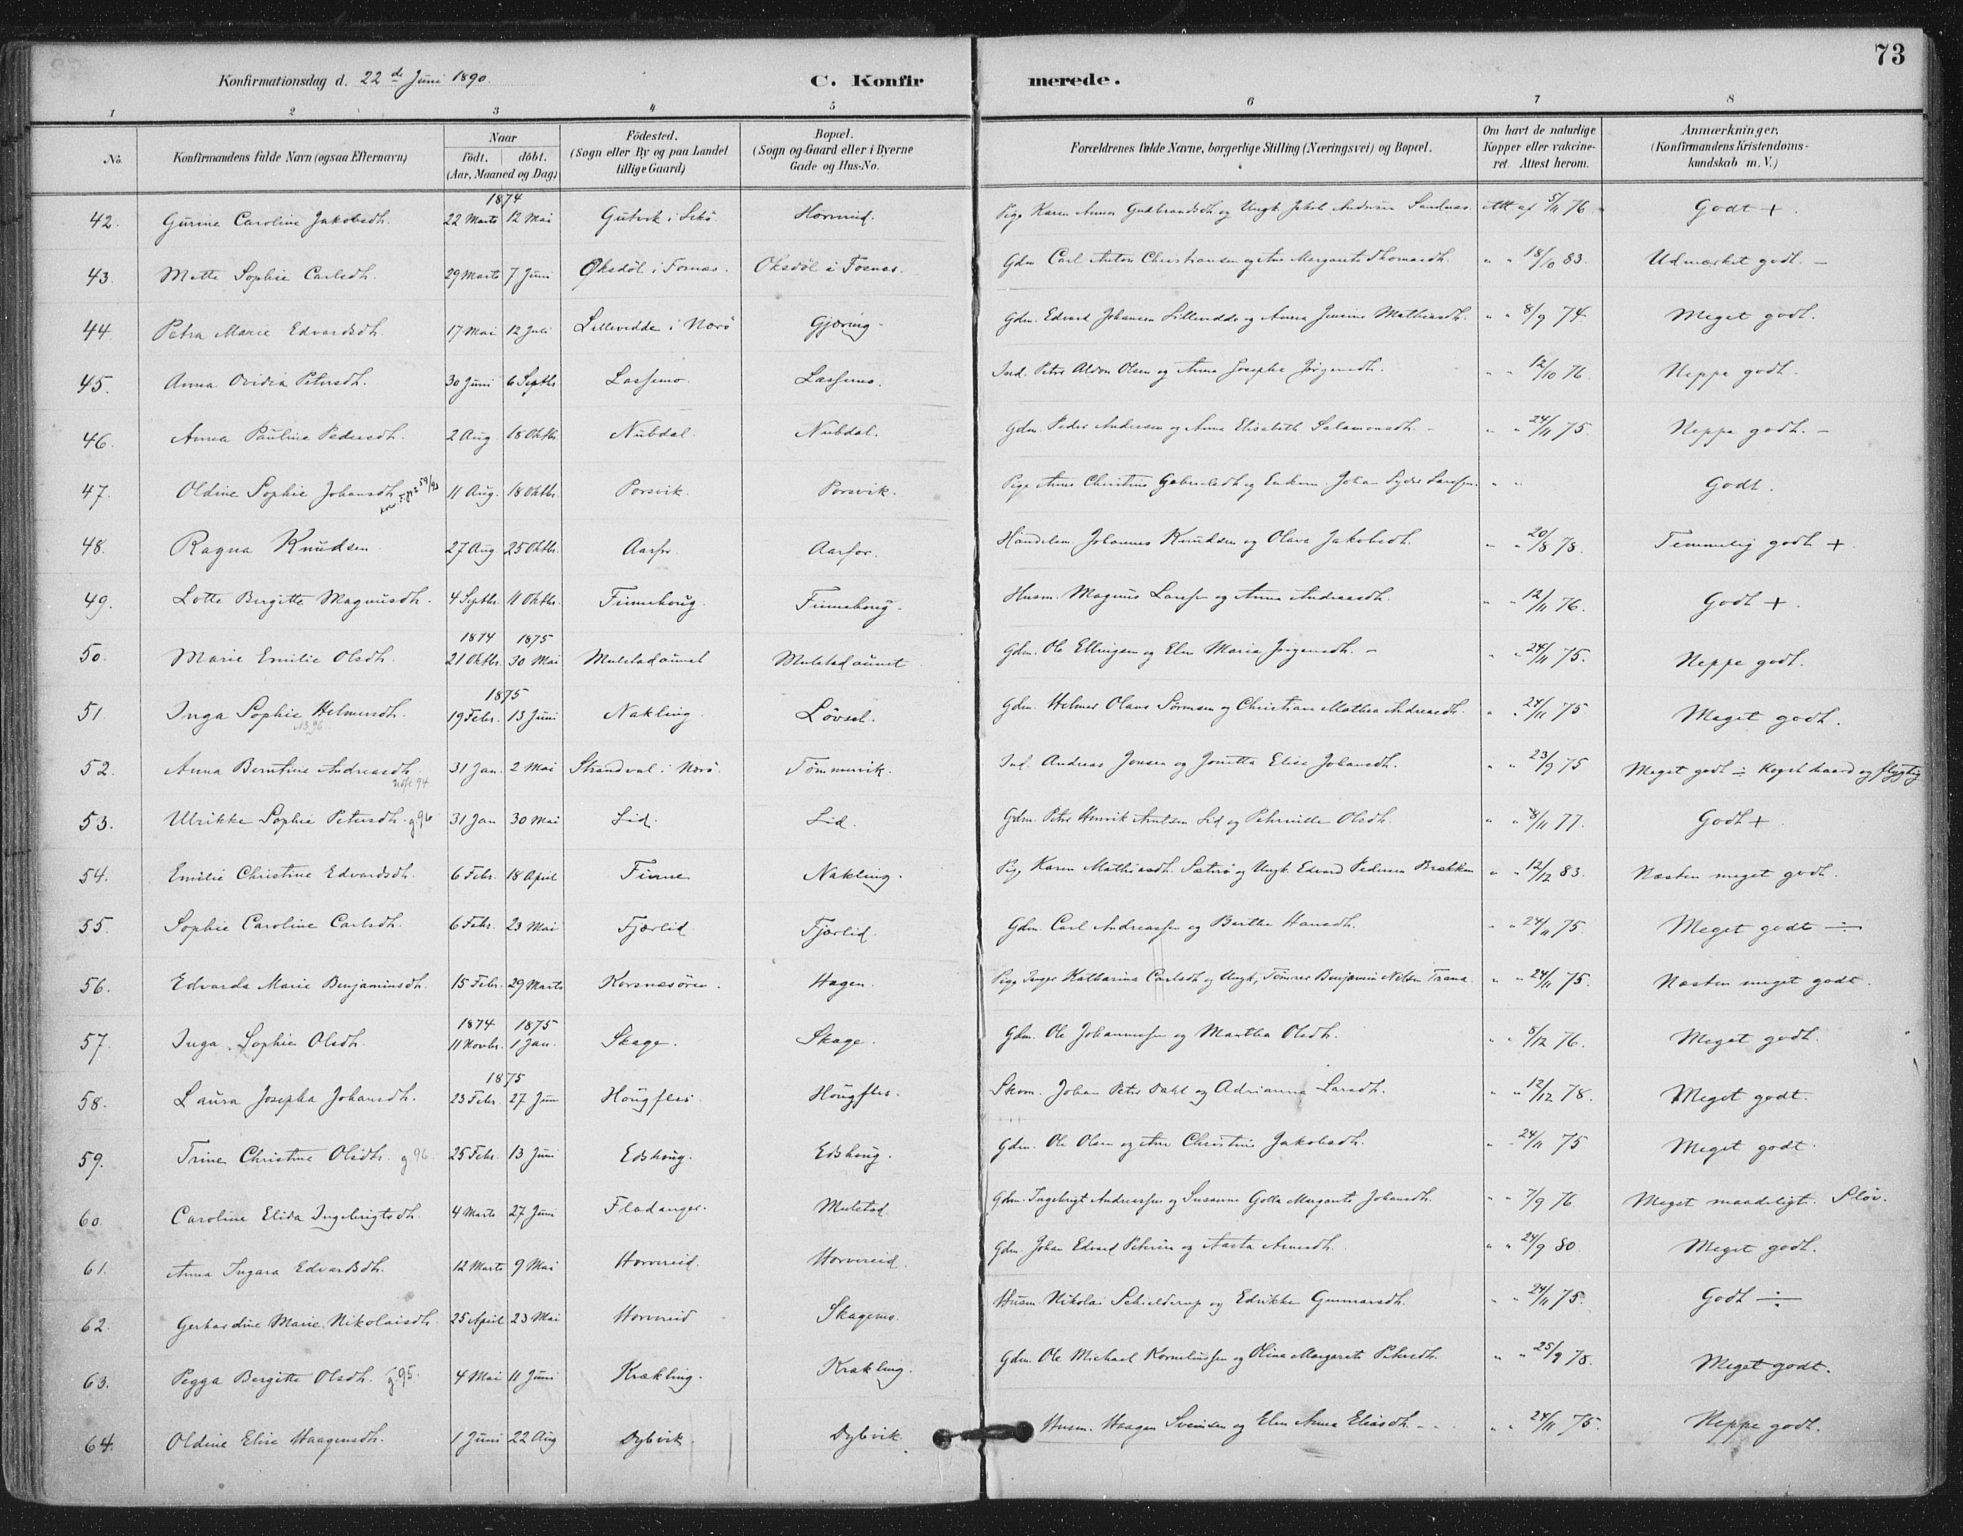 73
Konfirmationsdag d. 22de Juni 1890.
C. Konfirmerede.
1 2 3 4 5 6 7 8
No. Konfirmandens fulde Navn (ogsaa Efternavn) Naar födt. döbt. (Aar, Maaned og Dag) Födested. (Sogn eller By og paa Landet tillige Gaard) Bopæl. (Sogn og Gaard eller i Byerne Gade og Hus-No. Forældrenes fulde Navne, borgerlige Stilling (Næringsvei) og Bopæl. Om havt de naturlige Kopper eller vakcineret. Attest herom. Anmærkninger. (Konfirmandens Kristendomskundskab m. V.)
1874
42. Gurine Caroline Jakobsdh. 22 Marts 12 Mai Gutvik i Lekö Horvreid. Pige Karen Anna Gudbrandsdh og Ungk. Jakob Andersen Sandnes Att af 5/11 76. Godt +.
43. Mette Sophie Carlsdh. 29 Marts 7 Juni Öksdöl i Fosnes. Oksdöl i Fosnes. Gdm Carl Anton Christiansen og Ane Margarete Thomasdh. " " 18/10 83. Udmærket godt. –
44. Petra Marie Edvardsdh 17 Mai 12 Juli Lillevedde i Nærö Gjæring. Gdm. Edvard Johansen Lillevedde og Anna Jensine Mathiasdh. " " 8/9 74. Meget godt.
45. Anna Ovidia Petersdh. 30 Juni 6 Septbr. Lassemo. Lassemo. Ind. Peter Aldon Olsen og Anna Josepha Jörgensdh. " " 12/10 76. Neppe godt.
46. Anna Pauline Pedersdh. 2 Aug 18 Oktbr. Nubdal. Nubdal. Gdm. Peder Andersen og Anna Elisabeth Salamonsdh. – " " 24/11 75. Neppe godt. –
47. Oldine Sophie Johansdh 11 Aug. 18 Oktbr. Porsvik. Porsvik. Pige Anne Christine Gabrielsdh og Enkem. Johan " " Godt.
48. Ragna Knudsen 27 Aug 25 Oktbr. Aarfor. Aarfor. Handelsm. Johannes Knudsen og Olava Jakobsdh. " " 20/8 78. Temmelig godt +.
49. Lotte Bergitte Magnusdh. 4 Septbr. 11 Oktbr. Finnehoug. Finnehoug. Husm. Magnus Larssen og Anna Andreasdh. " " 12/11 76. Godt +.
1874 1875
50. Marie Emilie Olsdh. 21 Oktbr. 30 Mai Mulstadaunet Mulstadaunet Gdm. Ole Ellingsen og Elen Maria Jörgensdh. – " " 24/11 75. Neppe godt.
1875
51. Inga Sophie Helmersdh. 19 Febr. 13 Juni Nakling. Lövsel. Gdm. Helmer Olaus Sörensen og Christiane Mathea Andreasdh. " " 24/11 75 Meget godt.
52. Anna Berntine Andreasdh 31 Jan. 2 Mai Strandval i Nærö. Tömmervik. Ind. Andreas Jonsen og Jonetta Elise Johansdh. " " 23/9 75 Meget godt ÷ Noget haard og flygtig
53. Ulrikke Sophie Petersdh. g 96 31 Jan 30 Mai Lid. Lid. Gdm. Peter Henrik Arntsen Lid og Pehrnille Olsdh. " " 8/11 77. Godt +
54. Emilie Christine Edvardsdh. 6 Febr. 18 April Finne Nakling. Pige Karen Mathiasdh. Sæterö og Ungk. Edvard Pedersen Brækken " " 12/12 83. Næsten meget godt.
55. Sophie Caroline Carlsdh. 6 Febr. 23 Mai Fjærlid Fjærlid. Gdm. Carl Andreassen og Berthe Hansdh. " " 24/11 75. Meget godt ÷
56. Edvarda Marie Benjaminsdh. 15 Febr. 29 Marts Korsnesören. Hagen. Pige Inger Katharina Carlsdh og Ungk, Tömrer Benjamin Nilsen Trana. " " 24/11 75. Næsten meget godt.
1874 1875
57. Inga Sophie Olsdh. 11 Novbr. 1 Jan. Skage. Skage. Gdm. Ole Johannessen og Martha Olsdh. " " 5/12 76. Meget godt.
1875
58. Laura Josepha Johansdh. 23 Febr. 27 Juni Hougfles. Hougfles. Skom. Johan Peter Dahl og Adrianna Larsdh. " " 12/12 78. Meget godt.
59. Trine Christine Olsdh. g 96. 25 Febr. 13 Juni Edshoug. Edshoug. Gdm. Ole Olsen og Ane Christine Jakobsdh. " " 24/11 75 Meget godt.
60. Caroline Elida Ingebrigtsdh. 4 Marts 27 Juni Fladanger. Mulstad. Gdm. Ingebrigt Andreassen og Susanne Golla Margarete Johansdh. " " 7/9 76 Meget maadeligt. Slöv.
61. Anna Ingara Edvardsdh. 12 Marts 9 Mai Horvreid. Horvreid. Gdm. Johan Edvard Petersen og Aasta Arnesdh. " " 24/9 80. Meget godt.
62. Gerhardine Marie Nikolaisdh. 25 April 23 Mai Horvreid Skagemo. Husm. Nikolai Schielderup og Edrikke Gunnarsdh. " " 24/11 75. Godt ÷
63. Pegga Bergitte Olsdh. g. 95. 4 Mai 11 Juni Krækling. Krækling. Gdm. Ole Michael Korneliussen og Oline Margarete Petersdh. " " 25/9 78. Meget godt.
64. Oldine Elise Haagensdh. 1 Juni 22 Aug Dybvik. Dybvik. Husm. Haagen Svensen og Elen Anna Eliasdh. – " " 24/11 75. Neppe godt.